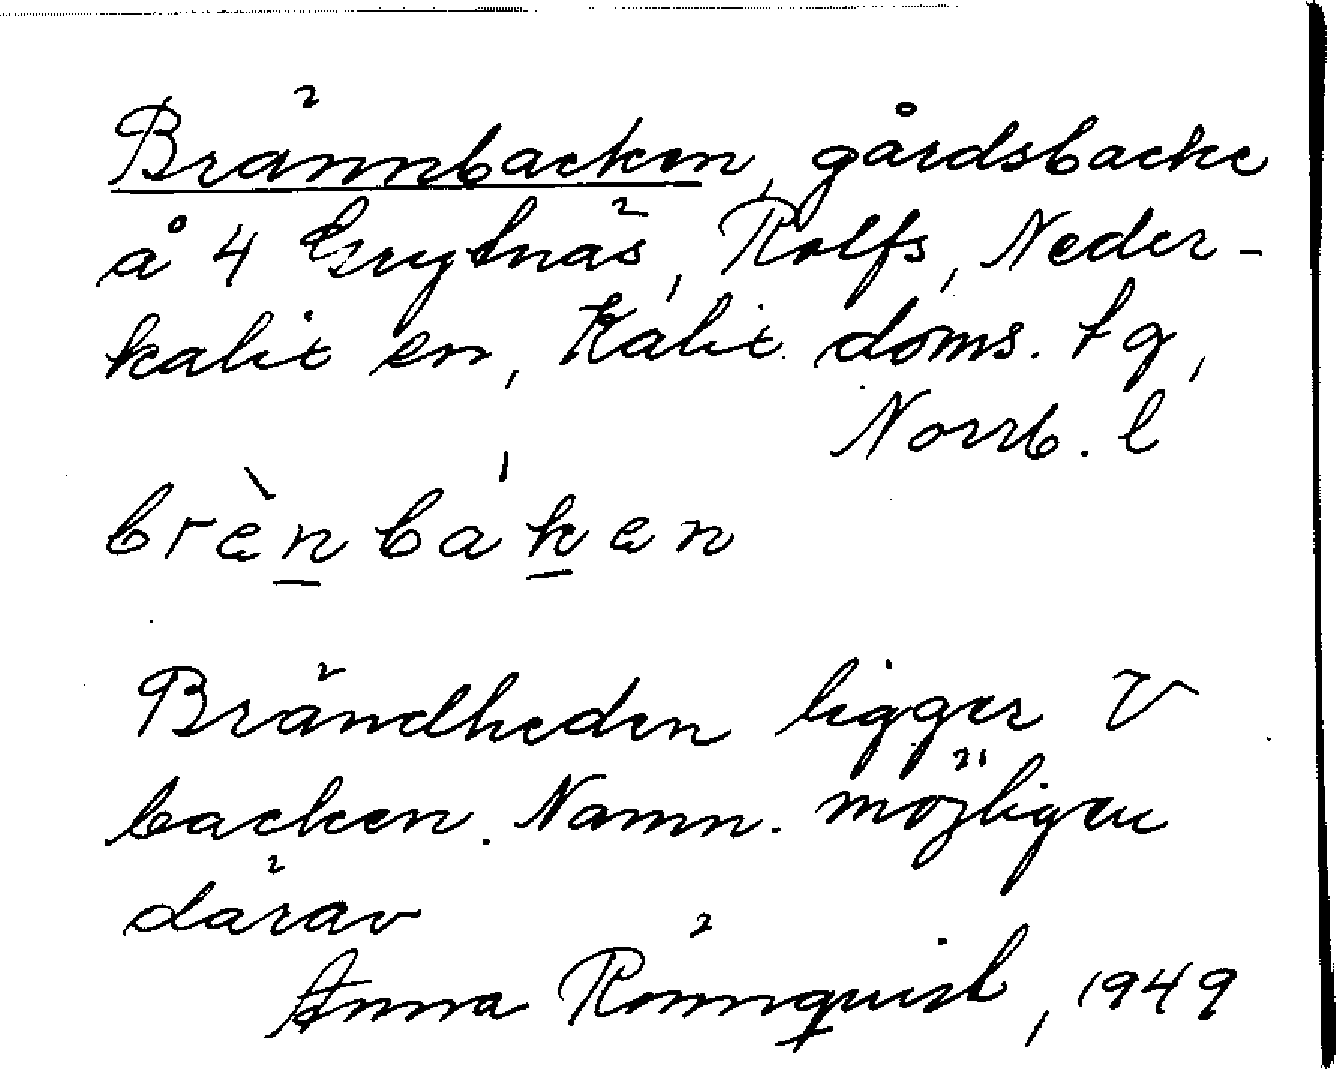 Brännbacken, gårdsbacke
å 4 Grytnäs, Rolfs, Neder-
kalix sn, Kalix doms. tg,
Norrb. l
brènbáken
Brändheden ligger V
backen. Namn. möjligen
därav
Anna Rönnquist, 1949